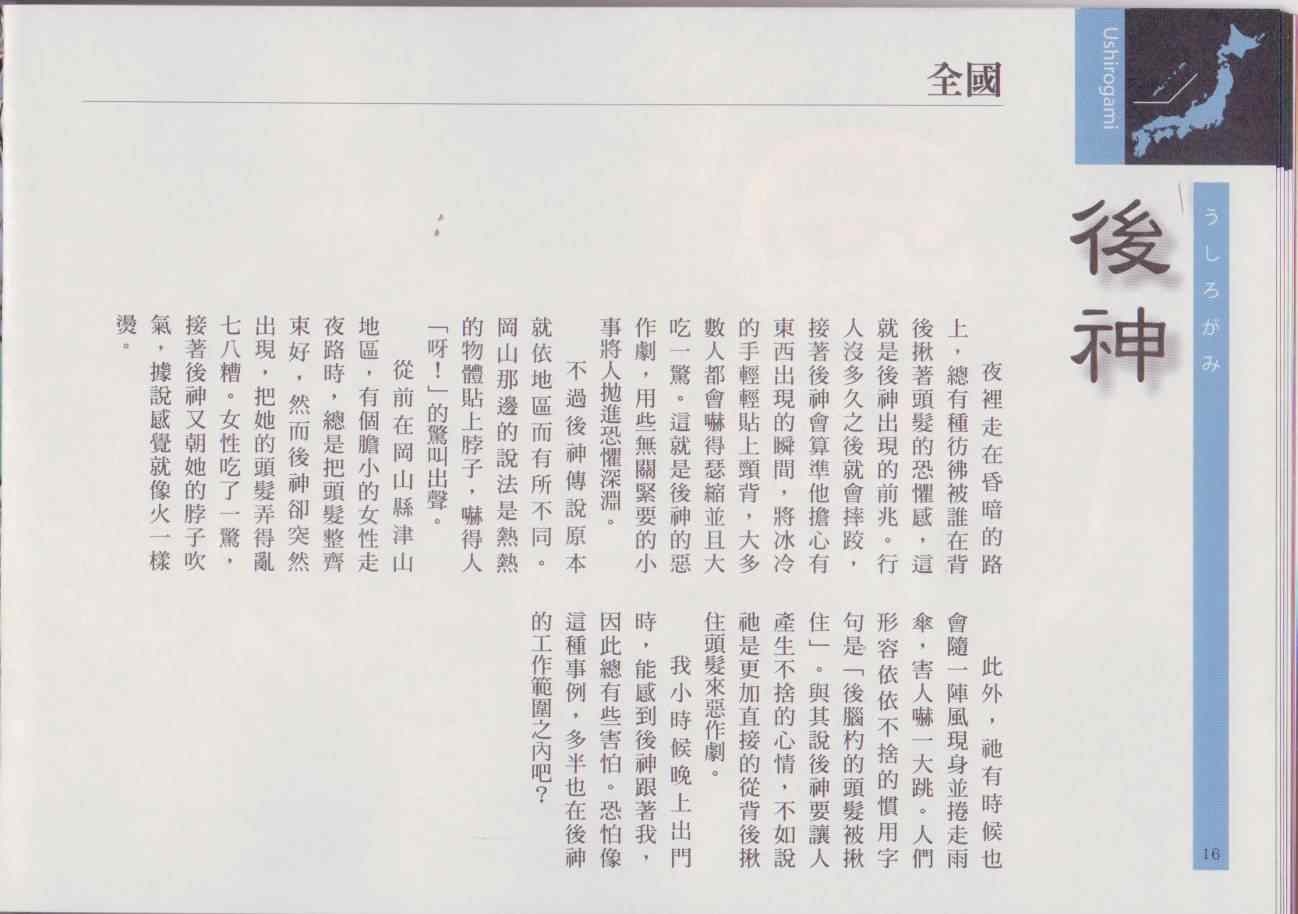 Ushirogami
うしろがみ
後神
全國
夜裡走在昏暗的路
上，總有種彷彿被誰在背
後揪著頭髮的恐懼感，這
就是後神出現的前兆。行
人沒多久之後就會摔跤，
接著後神會算準他擔心有
東西出現的瞬間，將冰冷
的手輕輕貼上頸背，大多
數人都會嚇得瑟縮並且大
吃一驚。這就是後神的惡
作劇，用些無關緊要的小
事將人拋進恐懼深淵。
不過後神傳說原本
就依地區而有所不同。
岡山那邊的說法是熱熱
的物體貼上脖子，嚇得人
「呀！」的驚叫出聲。
從前在岡山縣津山
地區，有個膽小的女性走
夜路時，總是把頭髮整齊
束好，然而後神卻突然
出現，把她的頭髮弄得亂
七八糟。女性吃了一驚，
接著後神又朝她的脖子吹
氣，據說感覺就像火一樣
燙。
此外，祂有時候也
會隨一陣風現身並捲走雨
傘，害人嚇一大跳。人們
形容依依不捨的慣用字
句是「後腦杓的頭髮被揪
住」。與其說後神要讓人
產生不捨的心情，不如說
祂是更加直接的從背後揪
住頭髮來惡作劇。
我小時候晚上出門
時，能感到後神跟著我，
因此總有些害怕。恐怕像
這種事例，多半也在後神
的工作範圍之內吧？
16